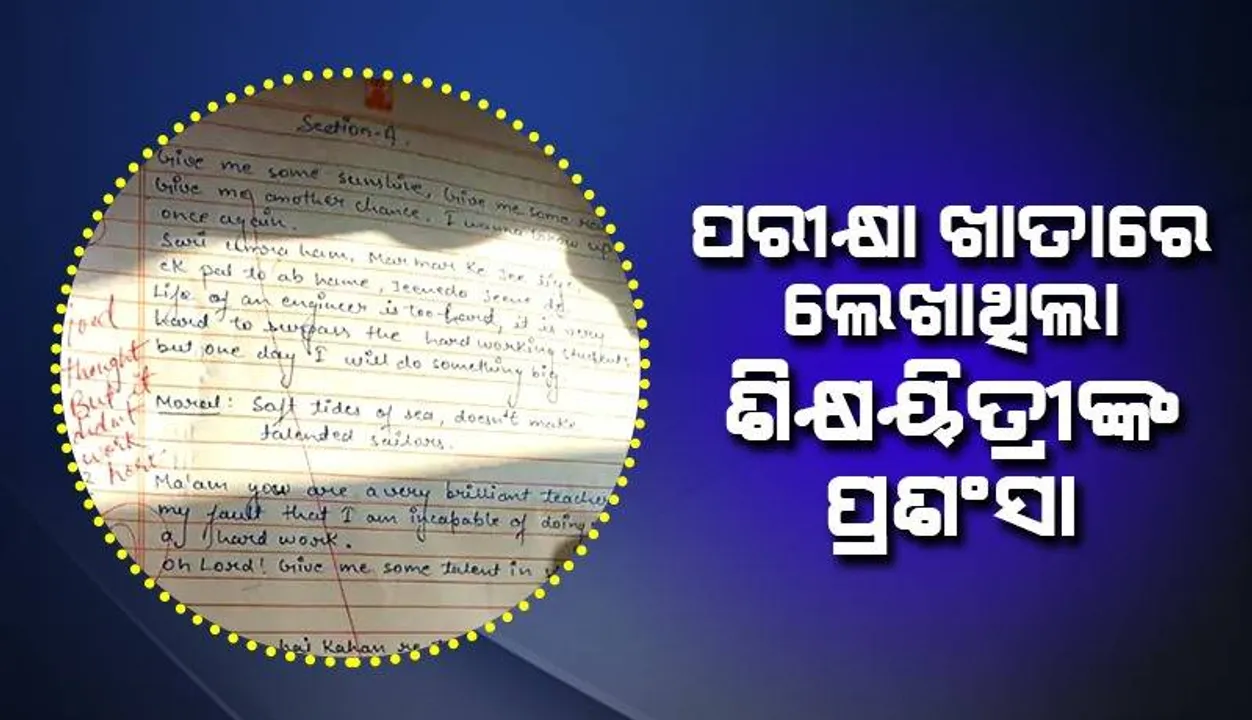 Section-A.
Give me some sunshine, Give me some
Give me another chance. I wanna grow up
once again.
Sari umra ham, Mar mar ke Jee liye,
ek pal to ab hame, Jeenedo Jeene do
Life of an engineer is too hard, it is very
hard to surpass the hard working students,
but one day I will do something big.
Moral: Soft tides of sea, doesn't make
talended sailors.
Ma'am you are a very brilliant teacher
my fault that I am incapable of doing
hard work.
Oh Lord! Give me some talent in
bhai Kahan re
thought
But it
didn't
work
here
ପରୀକ୍ଷା ଖାତାରେ
ଲେଖାଥିଲା
ଶିକ୍ଷୟିତ୍ରୀଙ୍କ
ପ୍ରଶଂସା